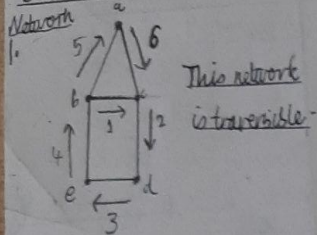 Network
1.
a
5
6
b
1
2
4
e
d
3
This network
is traversible-